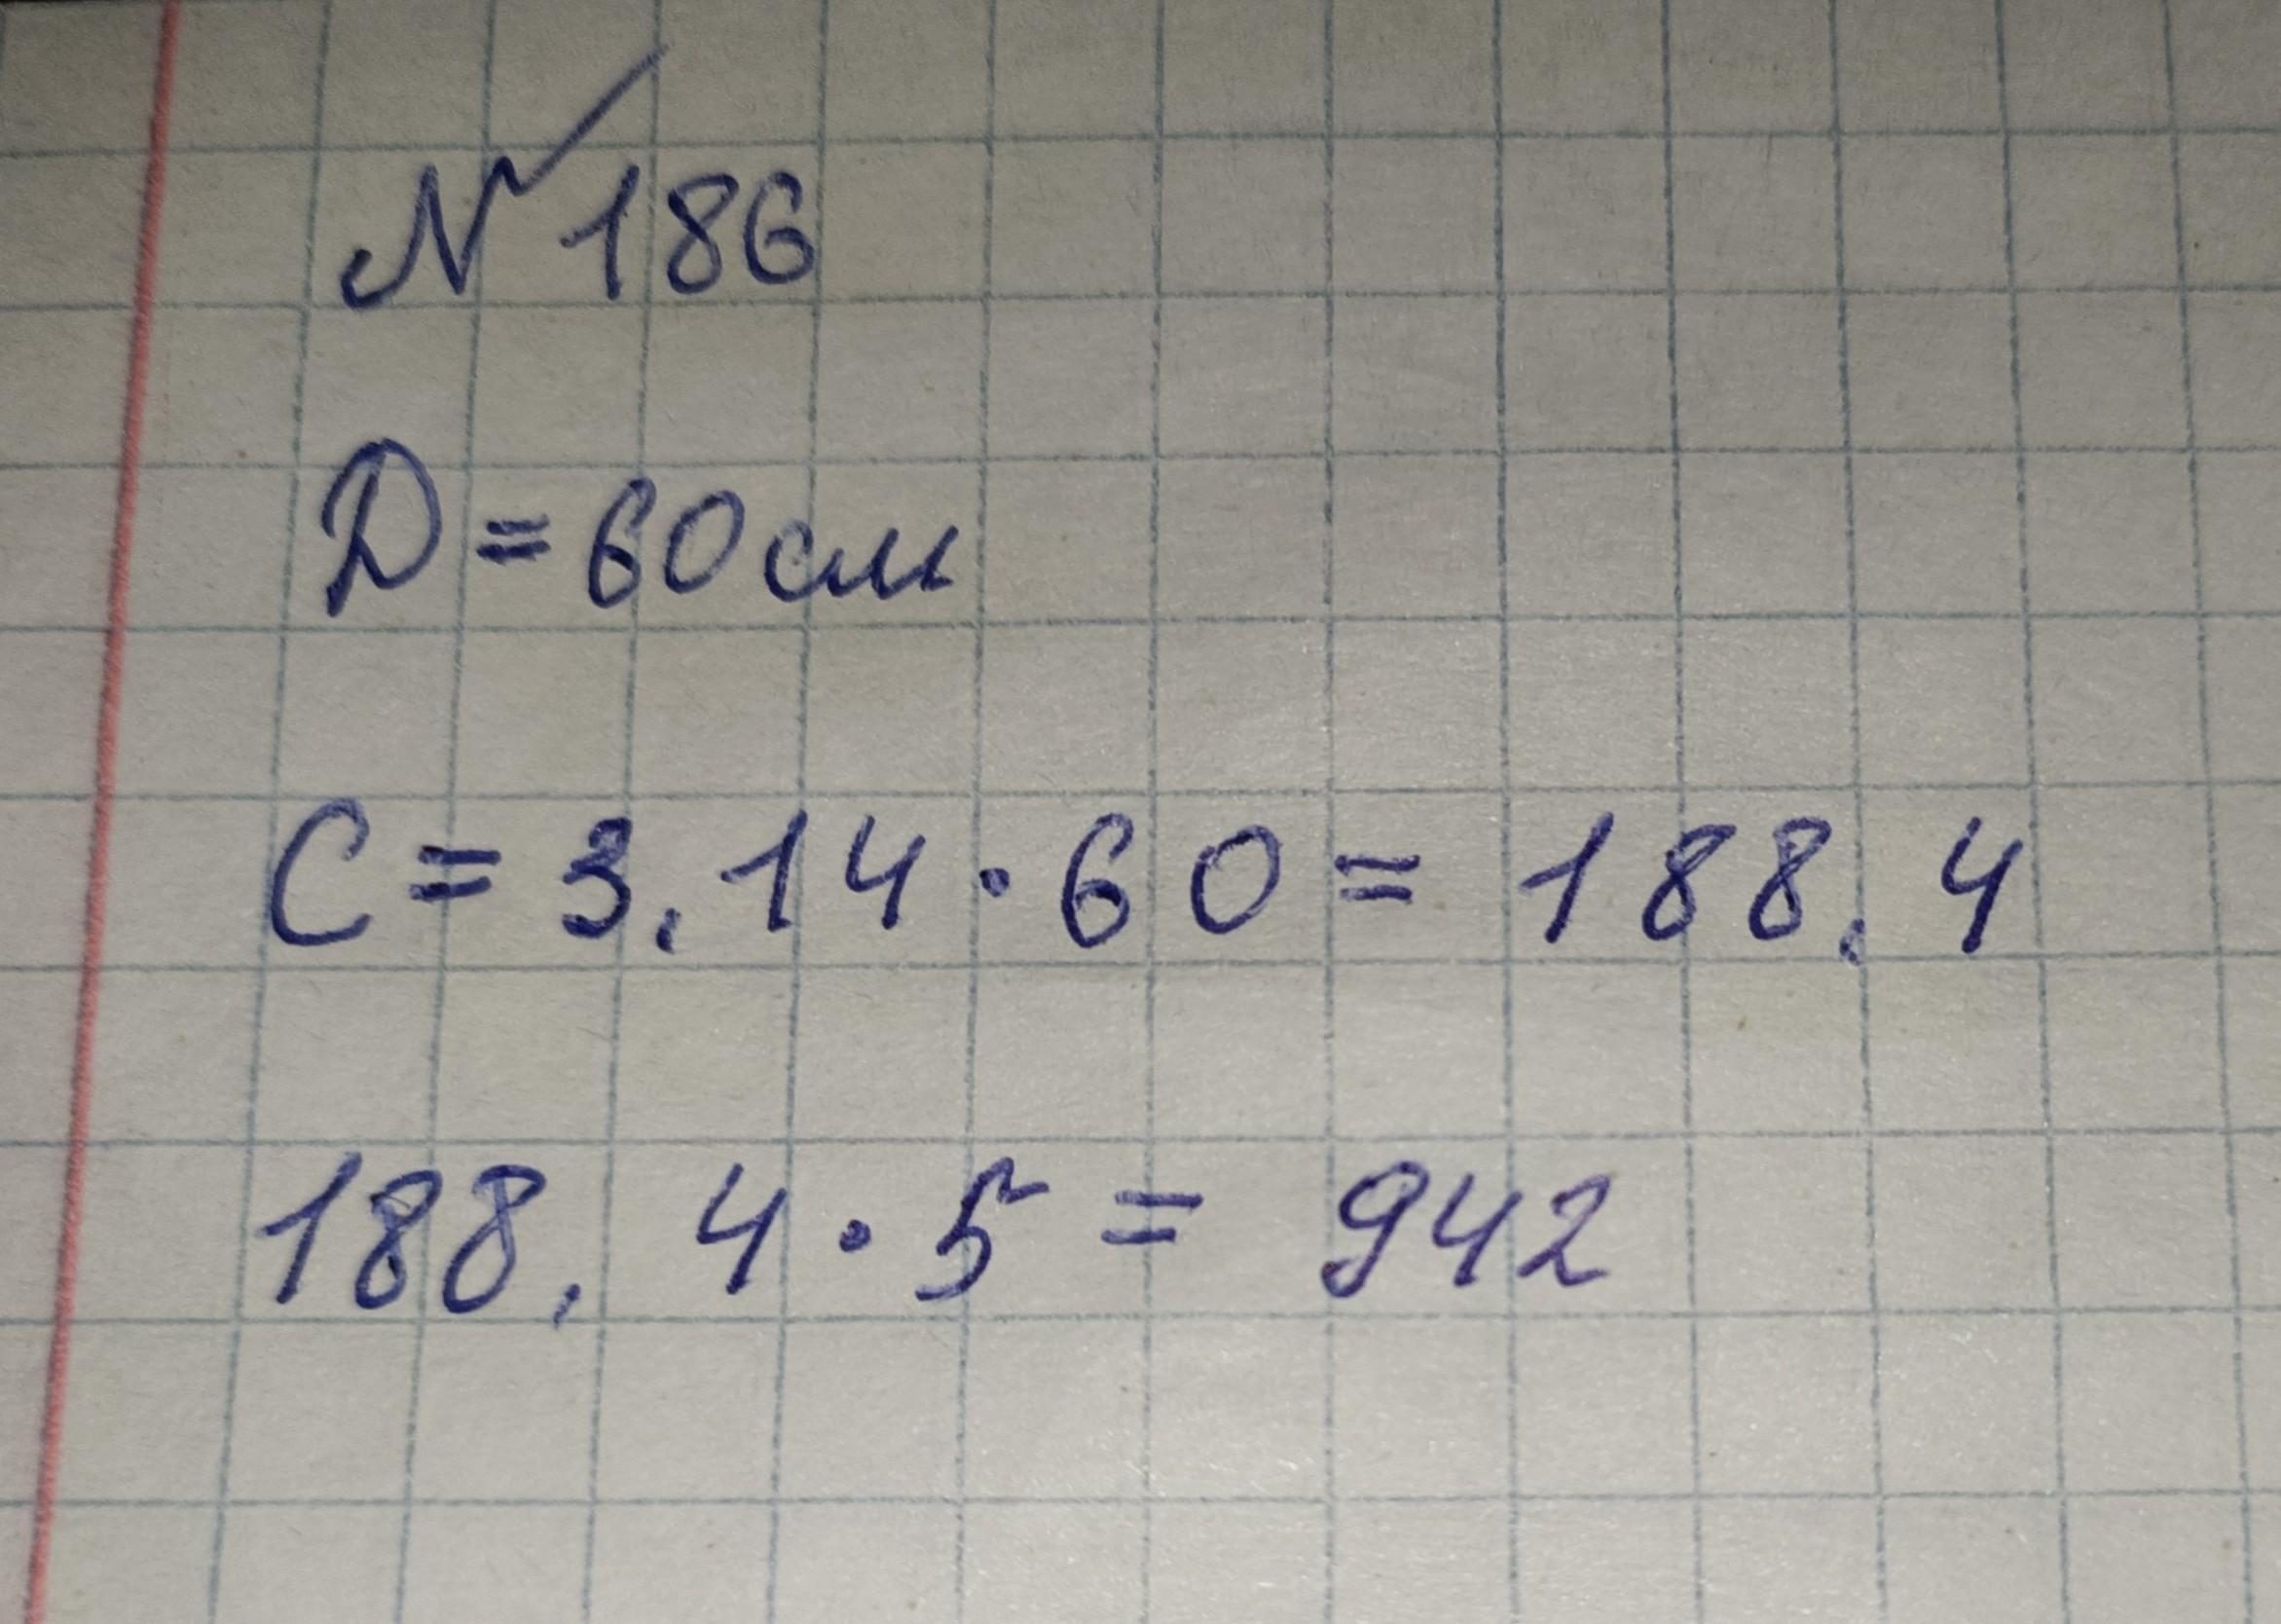 № 186
D = 60 см
C = 3,14 · 60 = 188,4
188,4 · 5 = 942